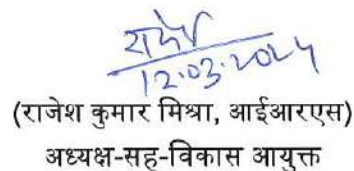 12.03.2024
(राजेश कुमार मिश्रा, आईआरएस)
अध्यक्ष-सह-विकास आयुक्त